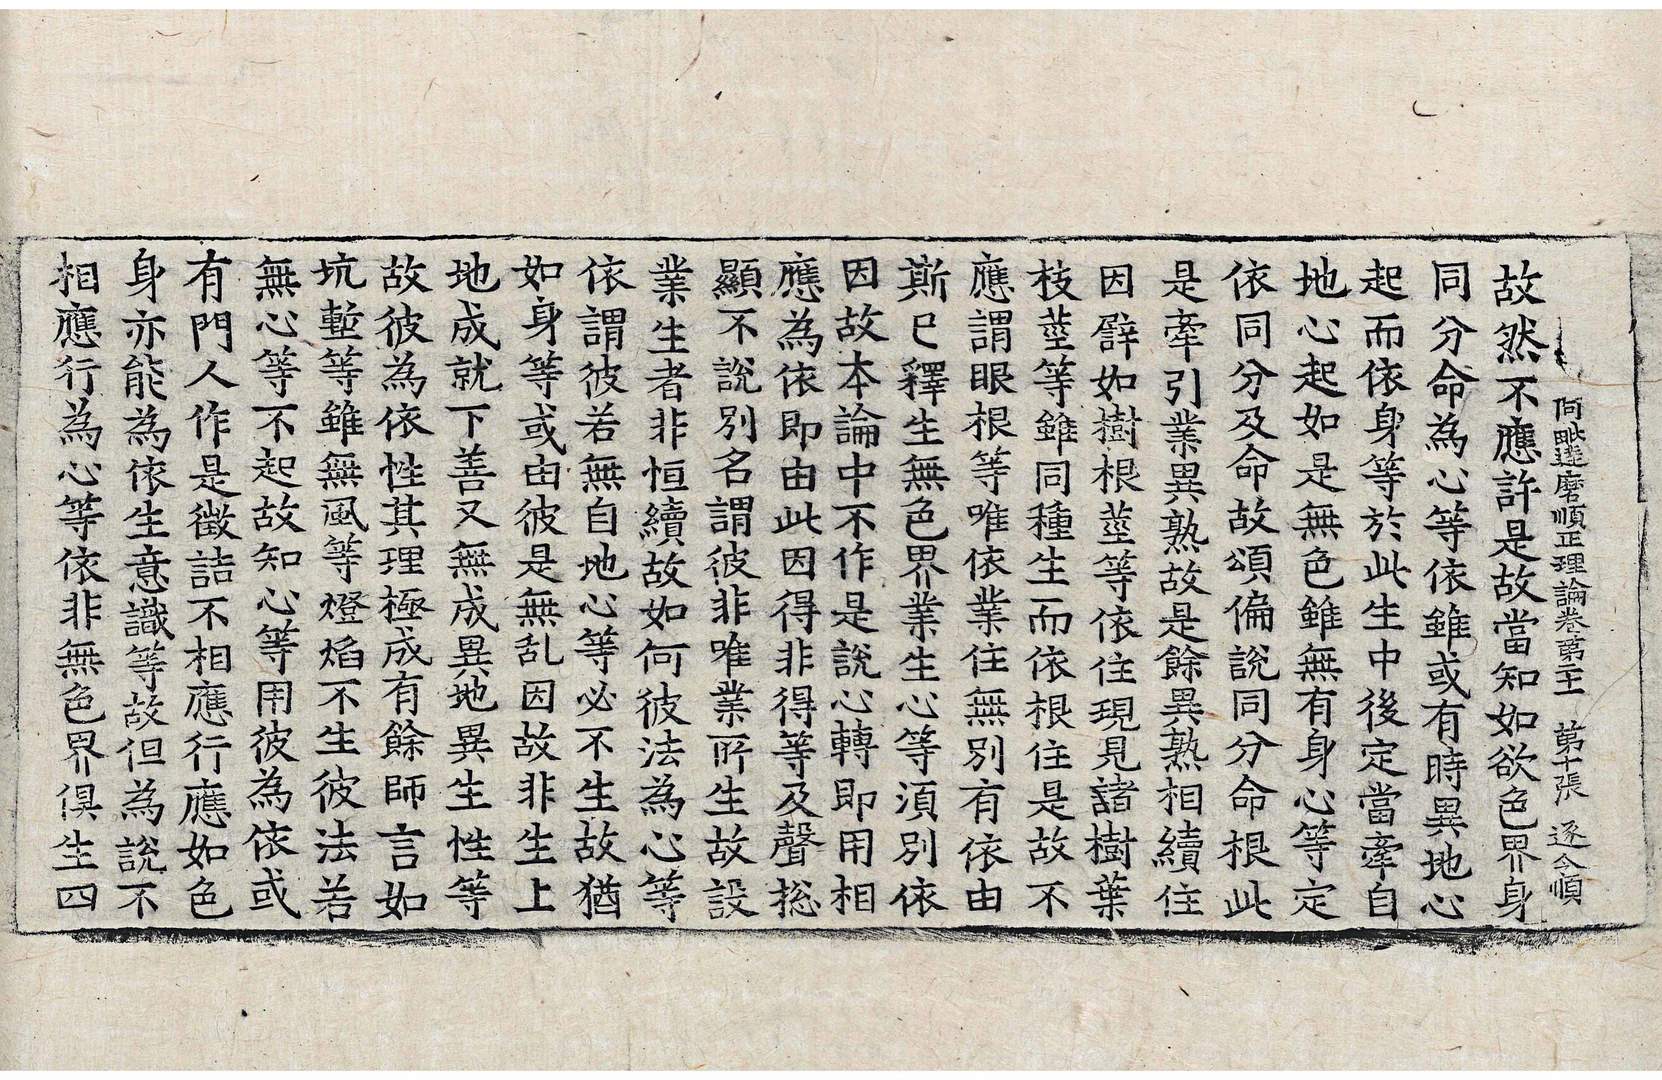 阿毗達磨順正理論卷第二十一 第十張 逐令順
故然不應許是故當知如欲色界身
同分命為心等依雖或有時異地心
起而依身等於此生中後定當牽自
地心起如是無色雖無有身心等定
依同分及命故頌偏說同分命根此
是牽引業異熟故是餘異熟相續住
因譬如樹根莖等依住現見諸樹葉
枝莖等雖同種生而依根住是故不
應謂眼根等唯依業住無別有依由
斯已釋生無色界業生心等須別依
因故本論中不作是說心轉即用相
應為依即由此因得非得等及聲捴
顯不說別名謂彼非唯業所生故設
業生者非恒續故如何彼法為心等
依謂彼若無自地心等必不生故猶
如身等或由彼是無乱因故非生上
地成就下善又無成異地異生性等
故彼為依性其理極成有餘師言如
坑塹等雖無風等燈焰不生彼法若
無心等不起故知心等用彼為依或
有門人作是徵詰不相應行應如色
身亦能為依生意識等故但為說不
相應行為心等依非無色界俱生四